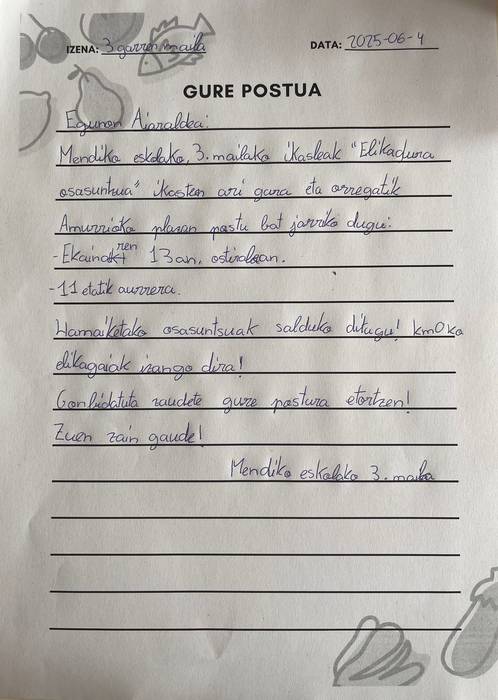 IZENA: 3 garren maila
DATA: 2025-06-4
GURE POSTUA
Egunon Aiaraldea:
Mendiko eskolako, 3. mailako ikasleak "Elikadura
osasuntsua" ikasten ari gara eta orregatik
Amurrioko plazan postu bat jarriko dugu:
- Ekainaren 13an, ostiralean.
- 11 etatik aurrera.
Hamaiketako osasuntsuak salduko ditugu! km0ko
elikagaiak izango dira!
Gonbidatuta zaudete gure postura etortzen!
Zuen zain gaude!
Mendiko eskolako 3. maila